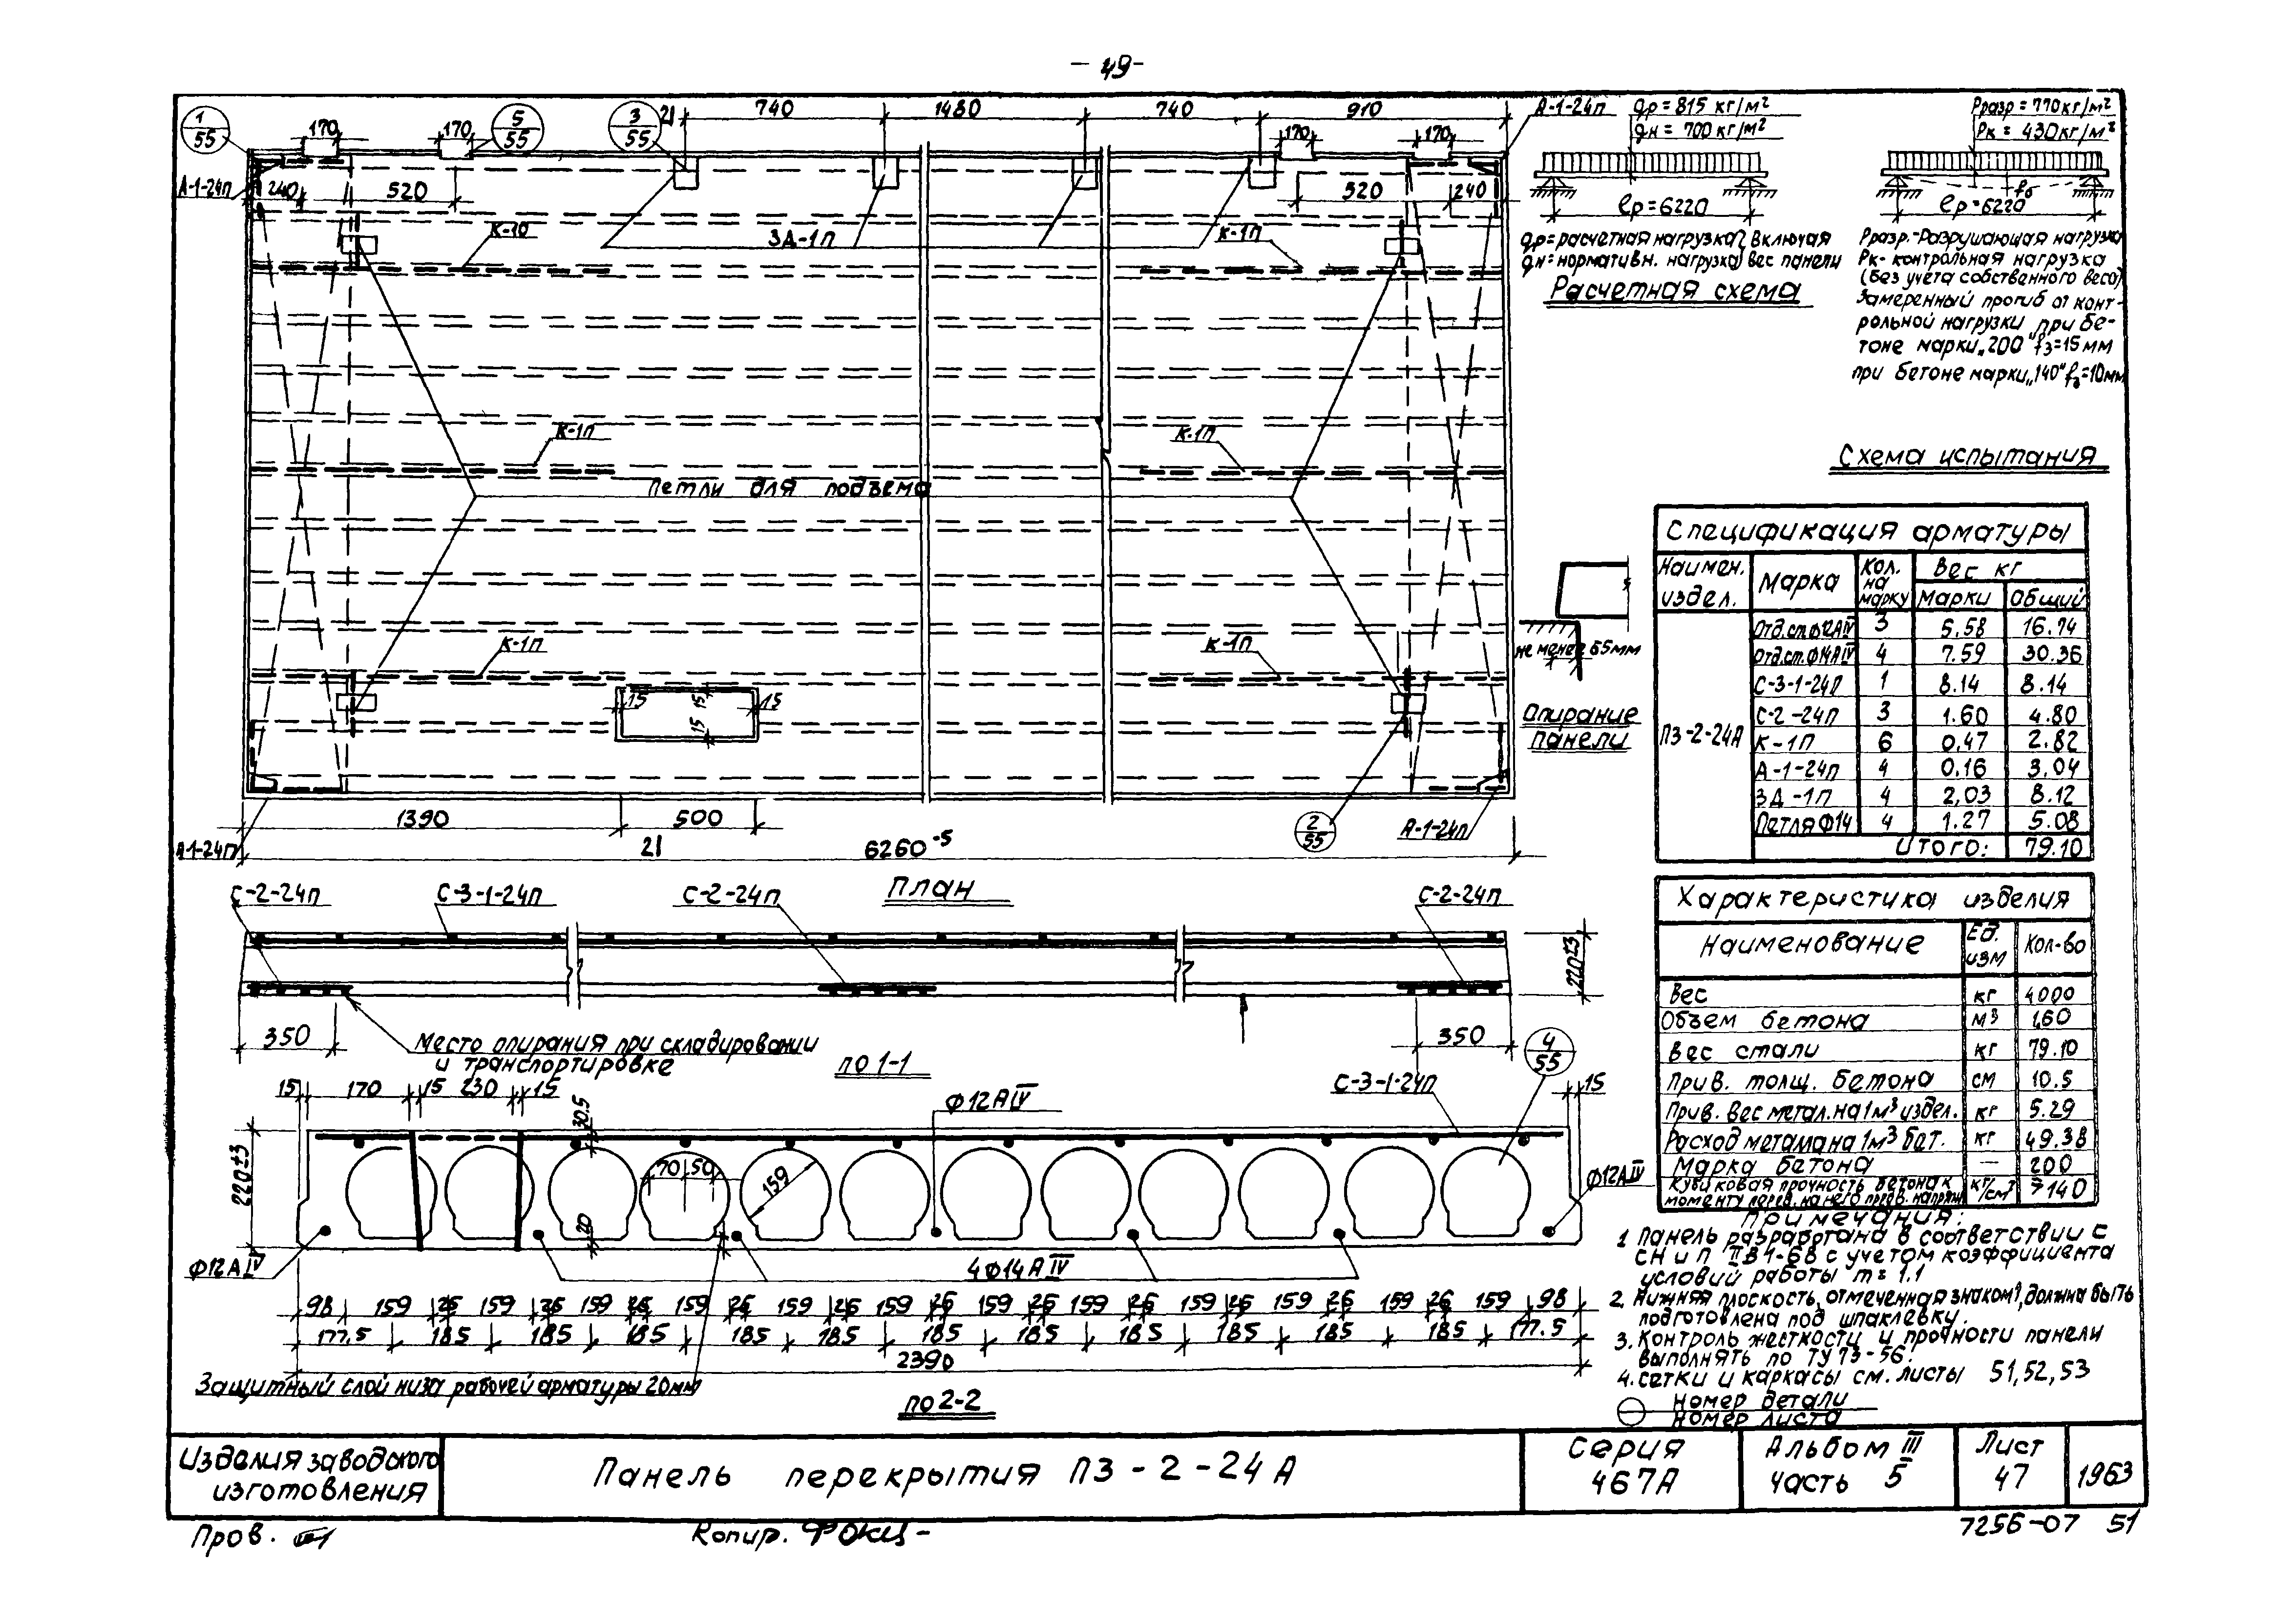 - 49-
1
55
170
170
5
55
3
55
21
740
1480
740
910
170
170
А-1-24п
А-1-24п
240
520
520
240
К-10
ЗД-1П
К-1П
К-1П
К-1П
Петли для подъема
К-1П
К-1П
15
15
15
15
1390
500
2
55
А-1-24п
А1-24П
21
6260⁻⁵
План
qр = 815 кг/м²
qн = 700 кг/м²
ℓр=6220
qр=расчетная нагрузка} включая
qн=нормативн. нагрузка} вес панели
Расчетная схема
Рразр = 770 кг/м²
Рк = 430кг/м²
fб
ℓр=6220
Рразр.-Разрушающая нагрузка
Рк- контрольная нагрузка
(без учета собственного веса)
Замеренный прогиб от конт-
рольной нагрузки при бе-
тоне марки „200" fз=15мм
при бетоне марки „140" fз=10мм
Схема испытания
не менее 65мм
Опирание
панели
Спецификация арматуры
Наимен. издел. Марка Кол. на марку Вес кг
Марки Общий
П3-2-24А
Отд.ст.Ф12АIV 3 5.58 16.74
Отд.ст.Ф14АIV 4 7.59 30.36
С-3-1-24П 1 8.14 8.14
С-2-24п 3 1.60 4.80
К-1П 6 0.47 2.82
А-1-24п 4 0.16 3.04
ЗД-1П 4 2,03 8.12
Петля Ф14 4 1.27 5.08
Итого: 79.10
С-2-24п
С-3-1-24п
С-2-24п
С-2-24п
220±3
350
350
Место опирания при складировании
и транспортировке
по 1-1
4
55
Характеристика изделия
Наименование Ед. изм Кол-во
Вес кг 4000
Объем бетона м³ 1,60
Вес стали кг 79.10
Прив. толщ. бетона см 10.5
Прив. вес метал. на 1м³ издел. кг 5.29
Расход металла на 1м³ бет. кг 49.38
Марка бетона — 200
Кубиковая прочность бетона к
моменту перев. на него предв. напряж кг/см² ≥140
15
170
15
230
15
30.5
Ф12АIV
С-3-1-24п
15
220±3
70
50
159
20
Ф12АIV
Ф12АIV
4Ф14АIV
98 159 26 159 26 159 26 159 26 159 26 159 26 159 26 159 26 159 26 159 26 159 26 159 98
177.5 185 185 185 185 185 185 185 185 185 185 185 177.5
2390
Защитный слой низа рабочей арматуры 20мм
по 2-2
Примечания:
1 Панель разработана в соответствии с
СН и П II В 1-68 с учетом коэффициента
условий работы m = 1.1
2. Нижняя плоскость, отмеченная знаком↑, должна быть
подготовлена под шпаклевку.
3. Контроль жесткости и прочности панели
выполнять по ТУ 73-56.
4. Сетки и каркасы см. листы 51, 52, 53
Номер детали
Номер листа
Изделия заводского
изготовления
Панель перекрытия П3-2-24А
Серия
467А
Альбом III
часть 5
Лист
47
1963
Пров.
Копир. Фокц-
7256-07 51